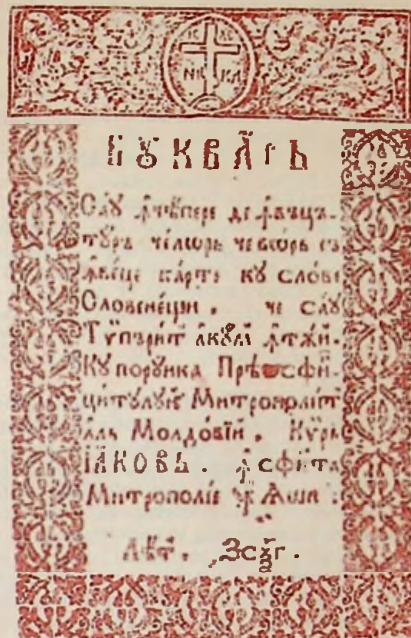 ІС ХС
НИ КА
БꙊКВА́Рь
Са́ꙋ ꙟче́пере де ꙟвѣцъ-
тꙋръ че́лѡрь че вѡ́рь съ
ꙟве́це ка́рте кꙋ сло́ве
Слове́нещи . че са́ꙋ
Ти́пърит акꙋ́м ꙟтѫ́й.
Кꙋ порꙋ́нка Прѣѡсфи-
ци́тꙋлꙋй Митрополи́т
а́ль Молдо́вїй . Кѵ́рь
ІА́КОВЬ . ꙟ сфѫ́та
Митропо́лїе ꙟ Ꙗши .
Лѣ́т . ҂Зсѯг .